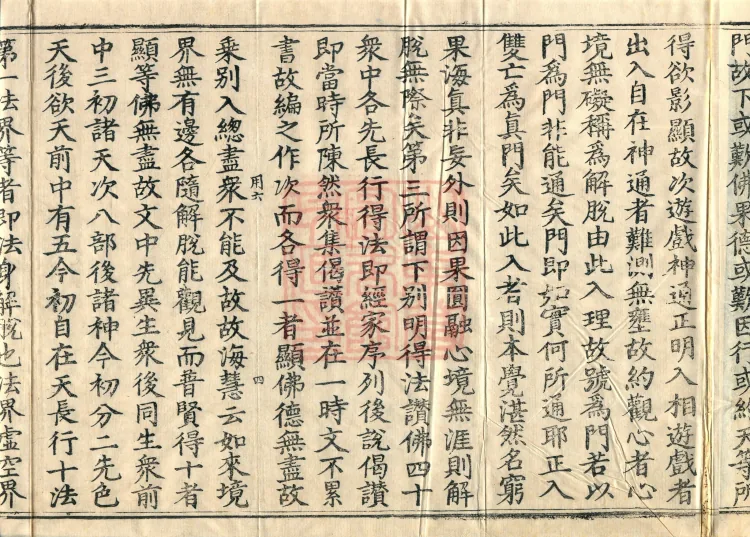 門故下或歎佛果德或歎因行或約天等所
得欲影顯故次遊戲神通正明入相遊戲者
出入自在神通者難測無壅故約觀心者心
境無礙稱爲解脫由此入理故號爲門若以
門爲門非能通矣門即如實何所通耶正入
雙亡爲真門矣如此入者則本覺湛然名窮
果海真非妄外則因果圓融心境無涯則解
脫無際矣第三所謂下别明得法讚佛四十
衆中各先長行得法即經家序列後說偈讚
即當時所陳然衆集偈讚並在一時文不累
書故編之作次而各得一者顯佛德無盡故
用六 四
乘别入緫盡衆不能及故故海慧云如來境
界無有邊各隨解脫能觀見而普賢得十者
顯等佛無盡故文中先異生衆後同生衆前
中三初諸天次八部後諸神今初分二先色
天後欲天前中有五今初自在天長行十法
第一法界等者即法身解脫也法界虛空界